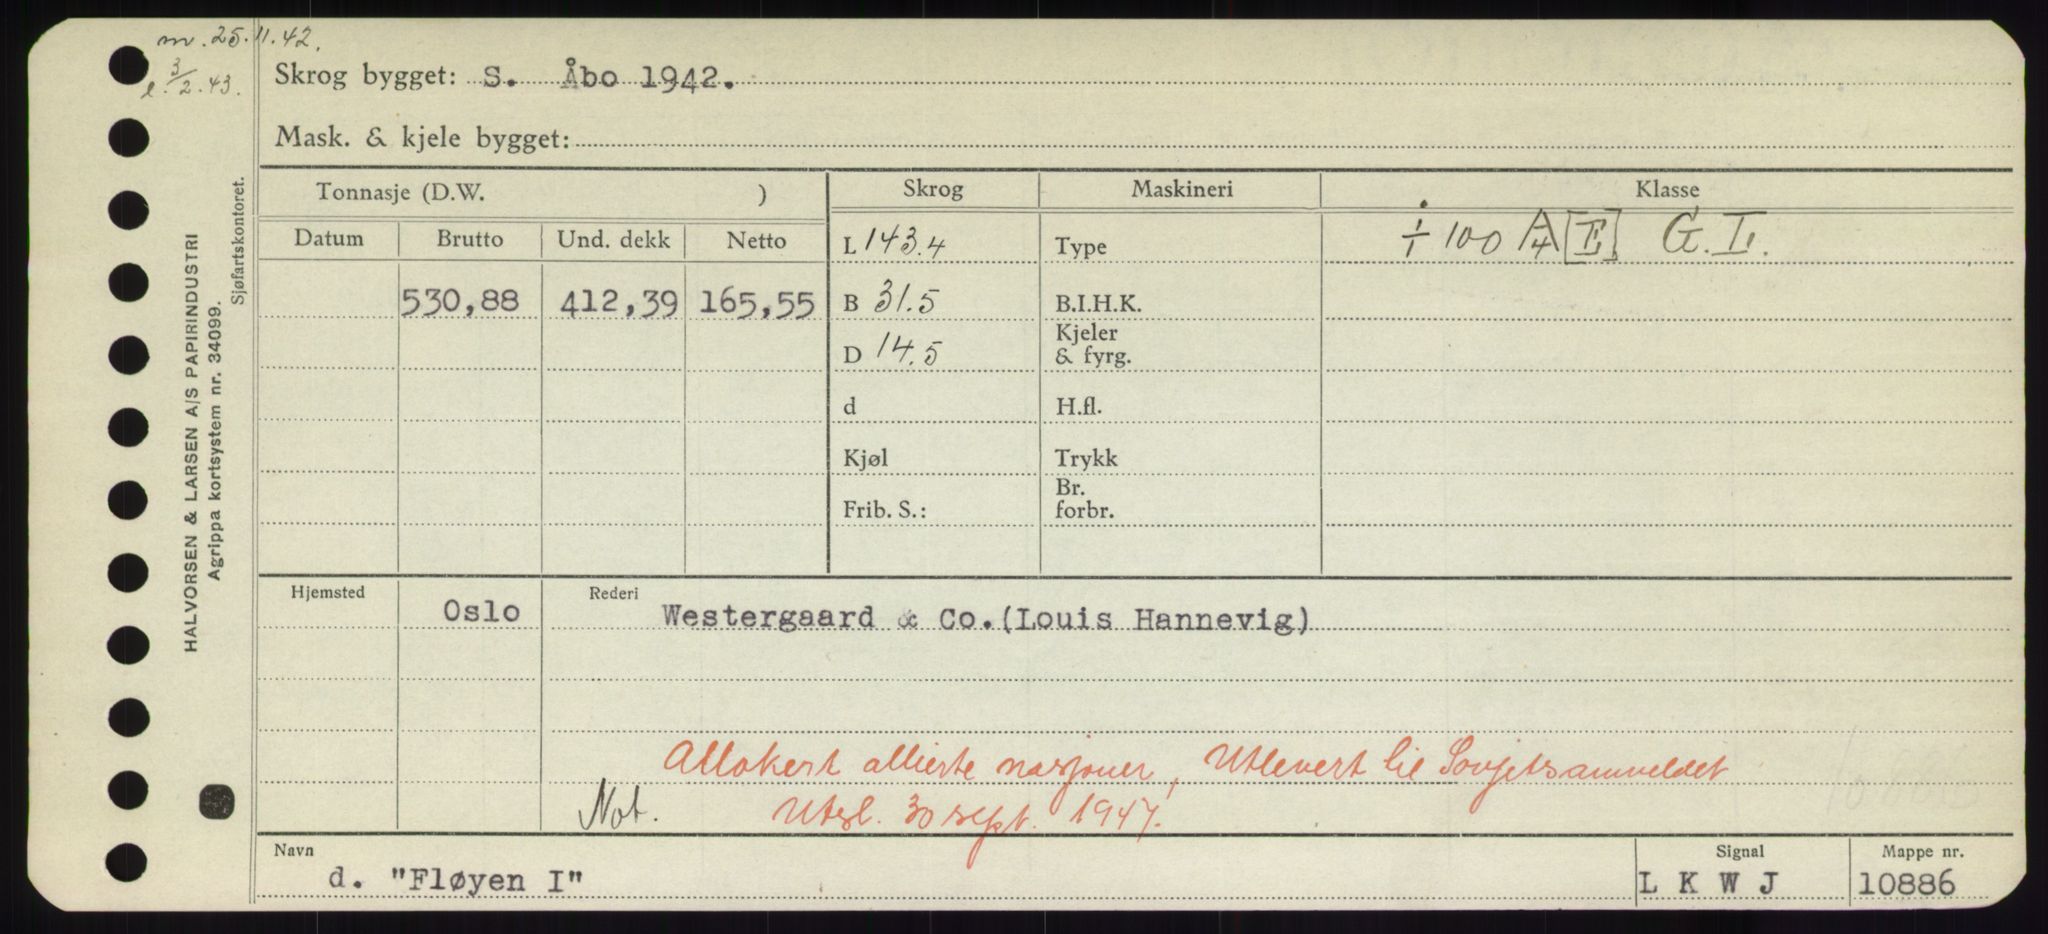 m. 25.11.42.
l. 3/2.43.
Skrog bygget: S. Åbo 1942.
Mask. & kjele bygget:
Tonnasje (D.W. )
Skrog
Maskineri
Klasse
Datum
Brutto
Und. dekk
Netto
L 143.4
Type
÷ 100 A/4 [E] G.I.
530,88
412,39
165,55
B 31.5
B.I.H.K.
D 14.5
Kjeler
& fyrg.
d
H.fl.
Kjøl
Trykk
Frib. S.:
Br.
forbr.
Hjemsted
Oslo
Rederi
Westergaard & Co.(Louis Hannevig)
Allokert allierte nasjoner, Utlevert til Sovjetsamveldet
Not.
Utsl. 30 sept. 1947.
Navn
d. "Fløyen I"
Signal
L K W J
Mappe nr.
10886
HALVORSEN & LARSEN A/S PAPIRINDUSTRI
Agrippa kortsystem nr. 34099.
Sjøfartskontoret.